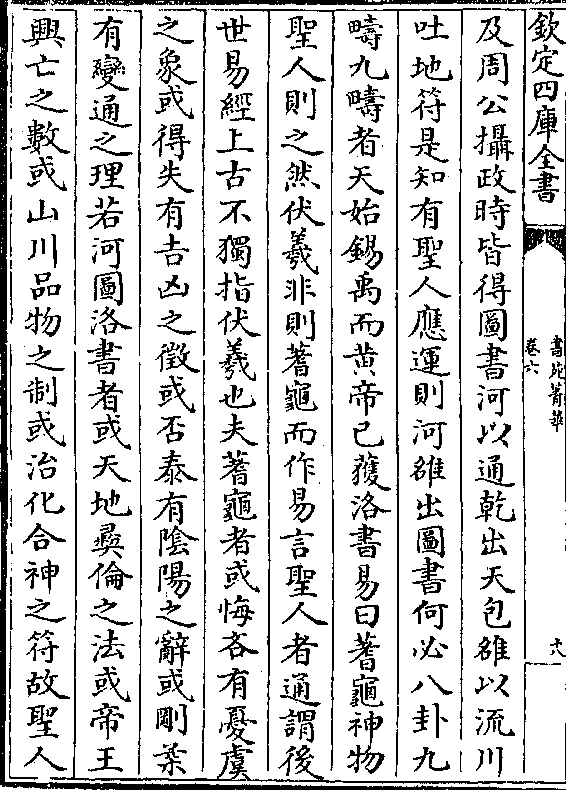 欽定四庫全書
書苑菁華
卷六
十八
及周公攝政時皆得圖書河以通乾出天包雒以流川
吐地符是知有聖人應運則河雒出圖書何必八卦九
疇九疇者天始錫禹而黄帝已獲洛書易曰蓍龜神物
聖人則之然伏羲非則蓍龜而作易言聖人者通謂後
世易經上古不獨指伏羲也夫蓍龜者或悔吝有憂虞
之象或得失有吉凶之徵或否泰有隂陽之辭或剛柔
有變通之理若河圖洛書者或天地彛倫之法或帝王
興亡之數或山川品物之制或治化合神之符故聖人